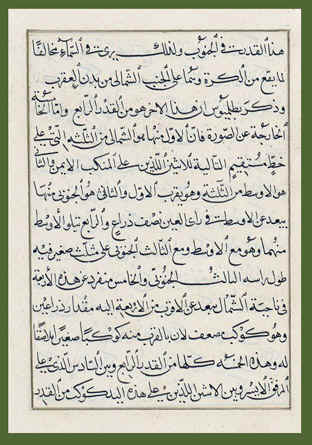 هذا القدر في الجنوب ولذلك يرى في السماء مخالفا
لما يقع من الكرة ويتماعلى الجنب الشمالى من بدن العقرب
وذكر بطلميوس ان هذا الاخر هو من القدر الرابع واما الثلثة
الخارجة عن الصورة فان الاول منها هو الشمالى من الثلثة التي على
خط مستقيم التالية للاثنين اللذين على المنكب الايمن والثانى
هو الاوسط من الثلثة وهو بقرب الاول والثالث هو الجنوبى منها
يبعد عن الاوسط في راى العين نصف ذراع والرابع يتلو الاوسط
منهما وهو مع الاوسط ومع الثالث الجنوبى على مثلث صغير فيه
طول راسه الثالث الجنوبى والخامس منفرد عن هذه الاربعة
في ناحية الشمال يبعد عن الاقرب من الاربعة اليه مقدار ذراعين
وهو كوكب مضعف لان بالقرب منه كوكبا صغيرا ملاصقا
له وهذه الخمسة كلها من القدر الرابع وبين السادس الذى على
المرفق الايسر وبين الاثنين اللذين على هذه اليد كوكب من القدر